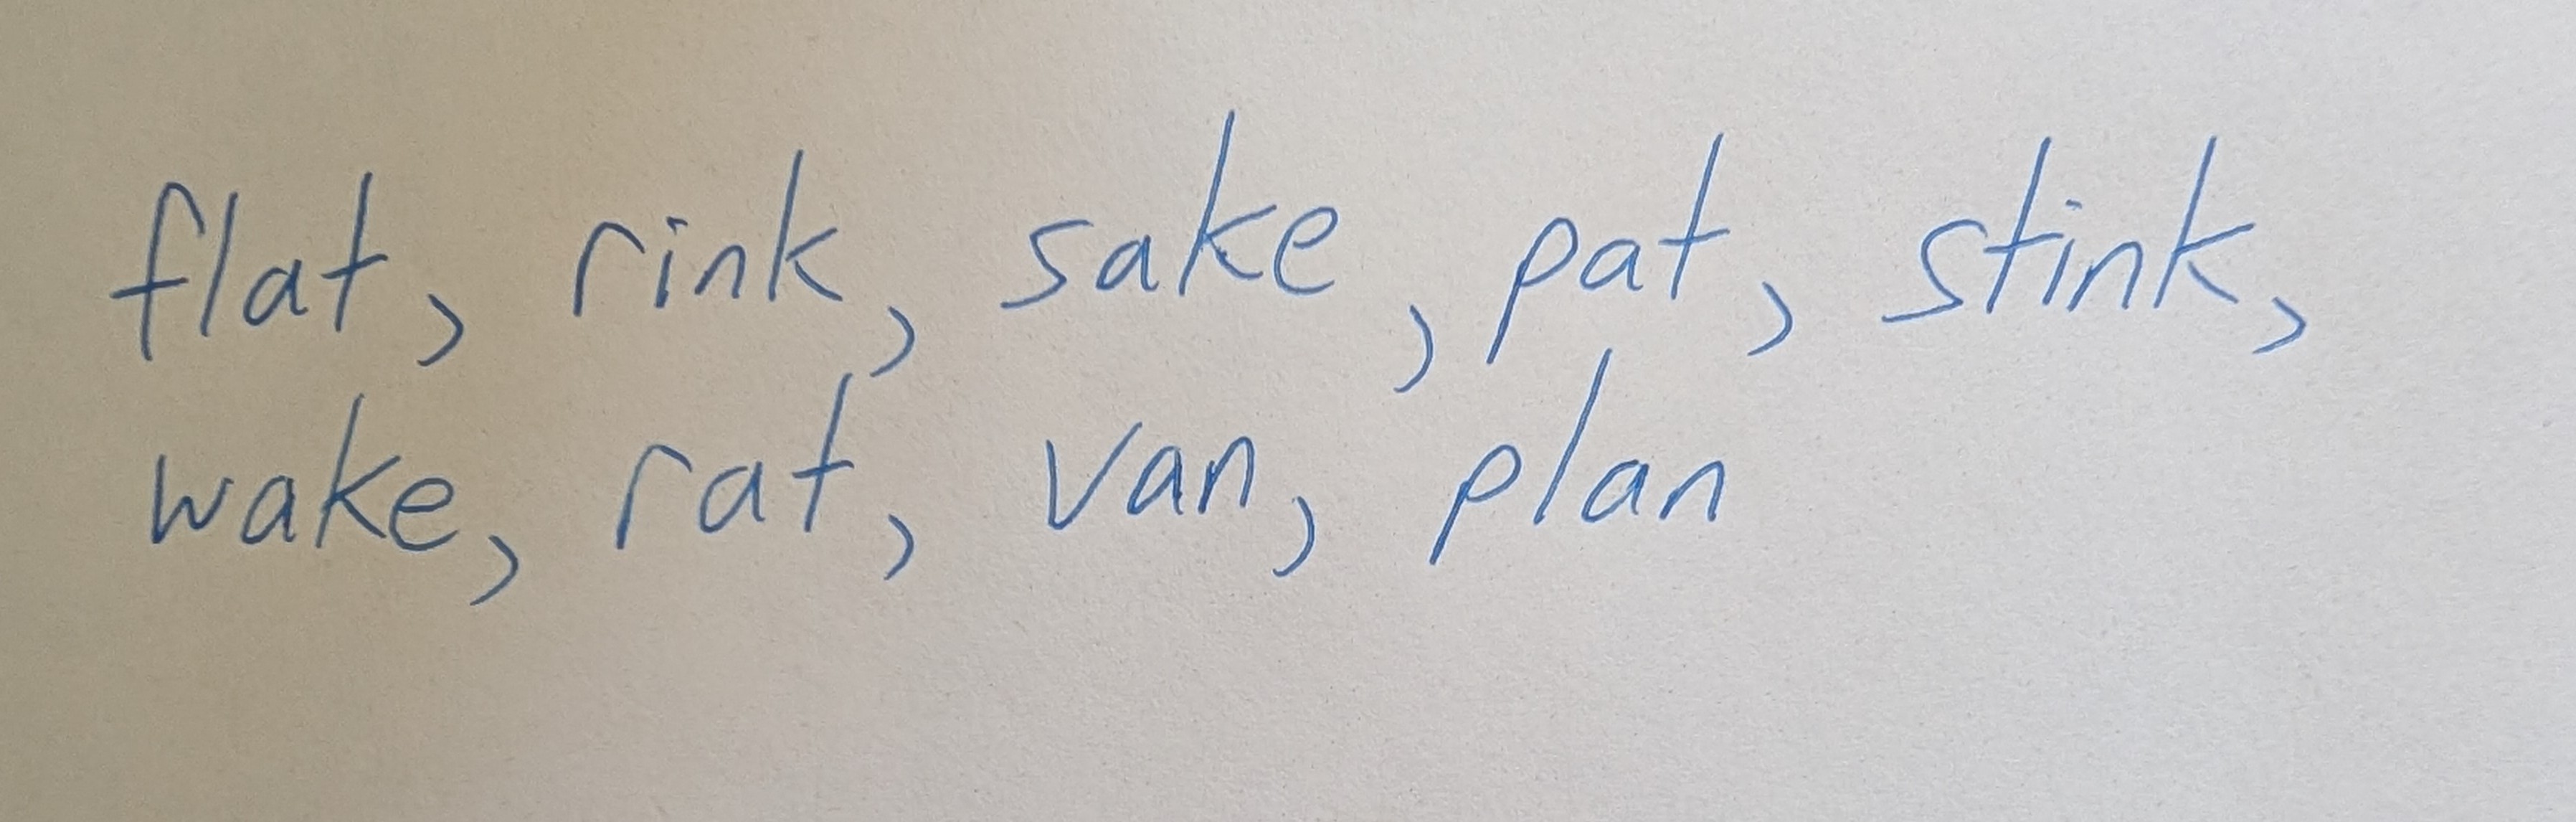 flat, rink, sake, pat, stink,
wake, rat, van, plan